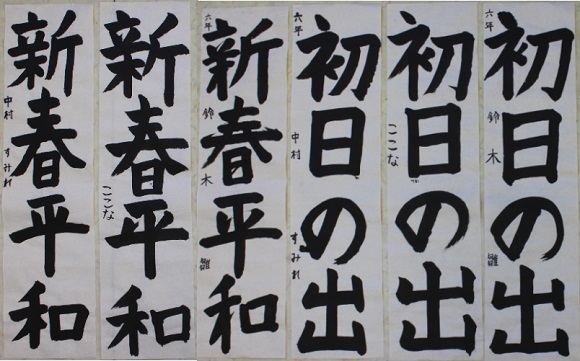 初日の出
六年 鈴木 雅
初日の出
ここな
初日の出
六年 中村 すみれ
新春平和
六年 鈴木 雅
新春平和
ここな
新春平和
中村 すみれ